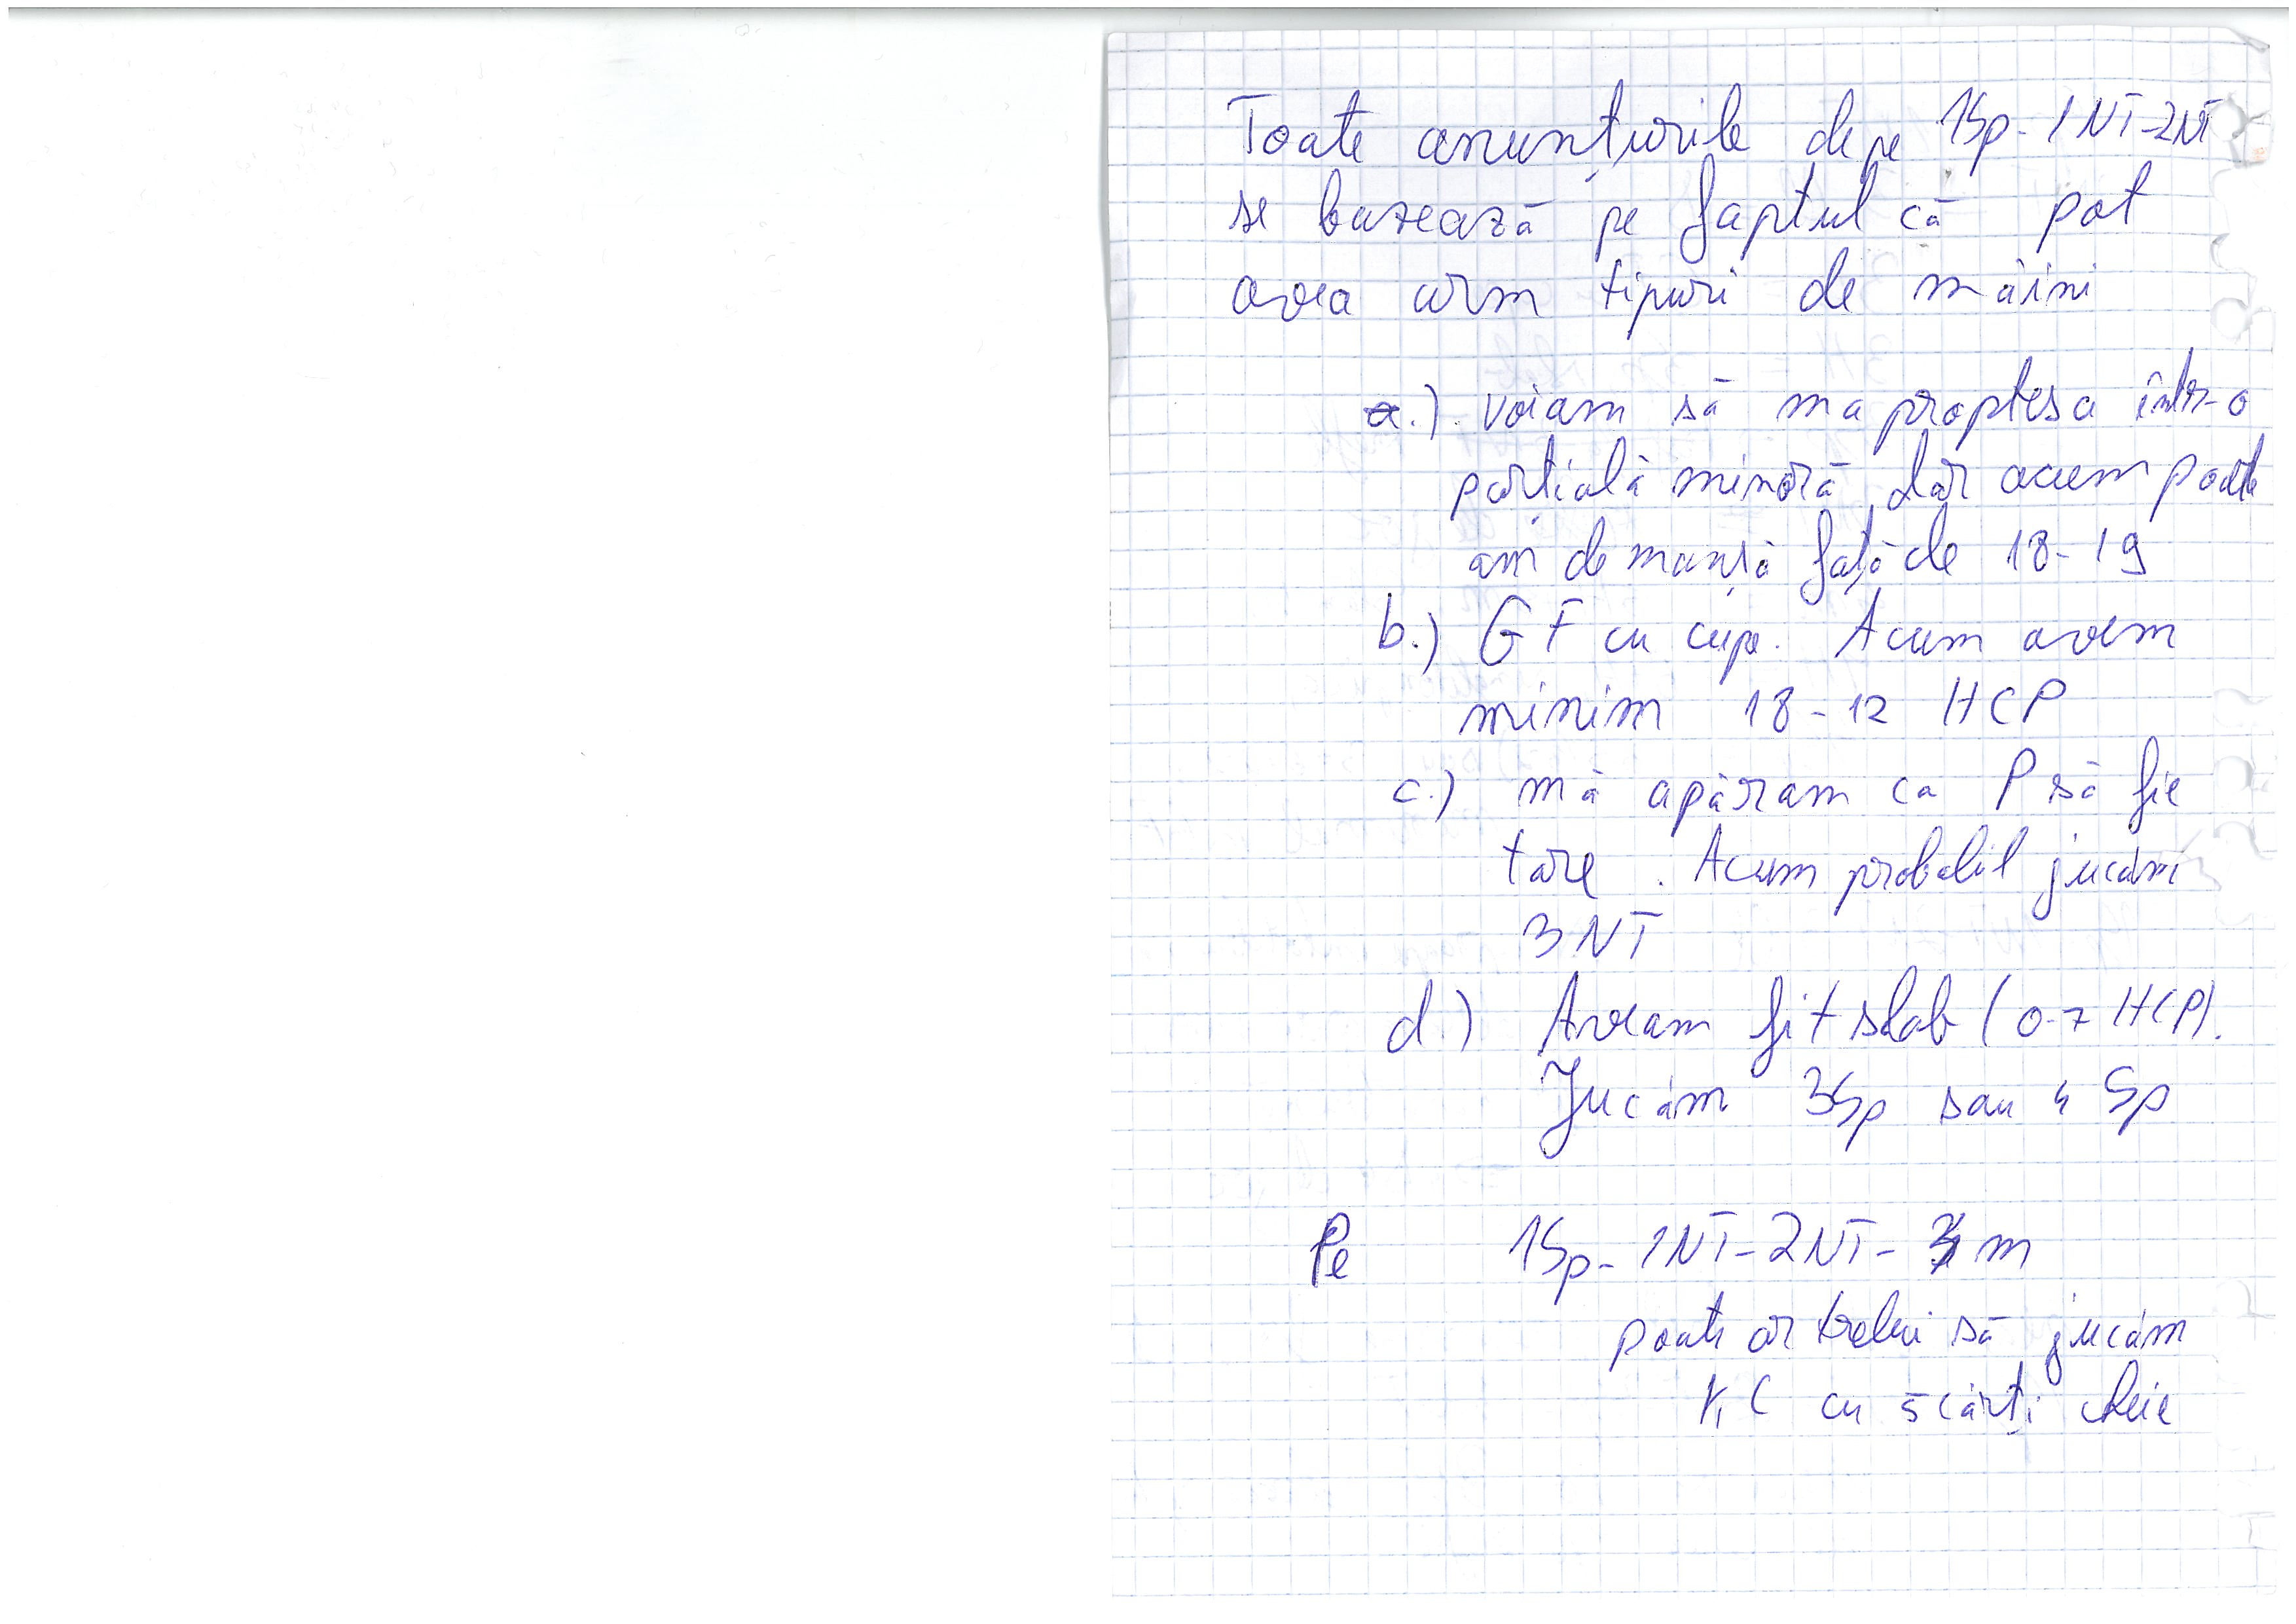 Toate anunțurile de pe 1Sp-1NT-2NT
se bazează pe faptul că pot
avea urm tipuri de mâini
a.) voiam să ma proptesc într-o
parțială minoră dar acum poate
am de manșă față de 18-19
b.) GF cu cupe. Acum avem
minim 18-12 HCP
c.) mă apăram ca P să fie
tare. Acum probabil jucăm
3NT
d.) Aveam fit slab (0-7 HCP).
Jucăm 3Sp sau 4Sp
Pe 1Sp-1NT-2NT- m
poate ar trebui să jucăm
KC cu 5 cărți cheie